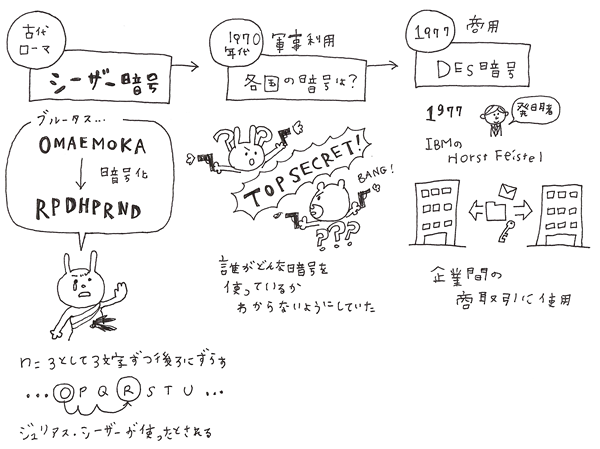 古代
ローマ
シーザー暗号
ブルータス…
OMAEMOKA
暗号化
RPDHPRND
n=3として3文字ずつ後ろにずらす
…OPQRSTU…
ジュリアス・シーザーが使ったとされる
1970
年代
軍事利用
各国の暗号は?
TOP SECRET!
BANG!
???
誰がどんな暗号を
使っているか
わからないようにしていた
1977
商用
DES暗号
1977
発明者
IBMの
Horst Feistel
企業間の
商取引に使用